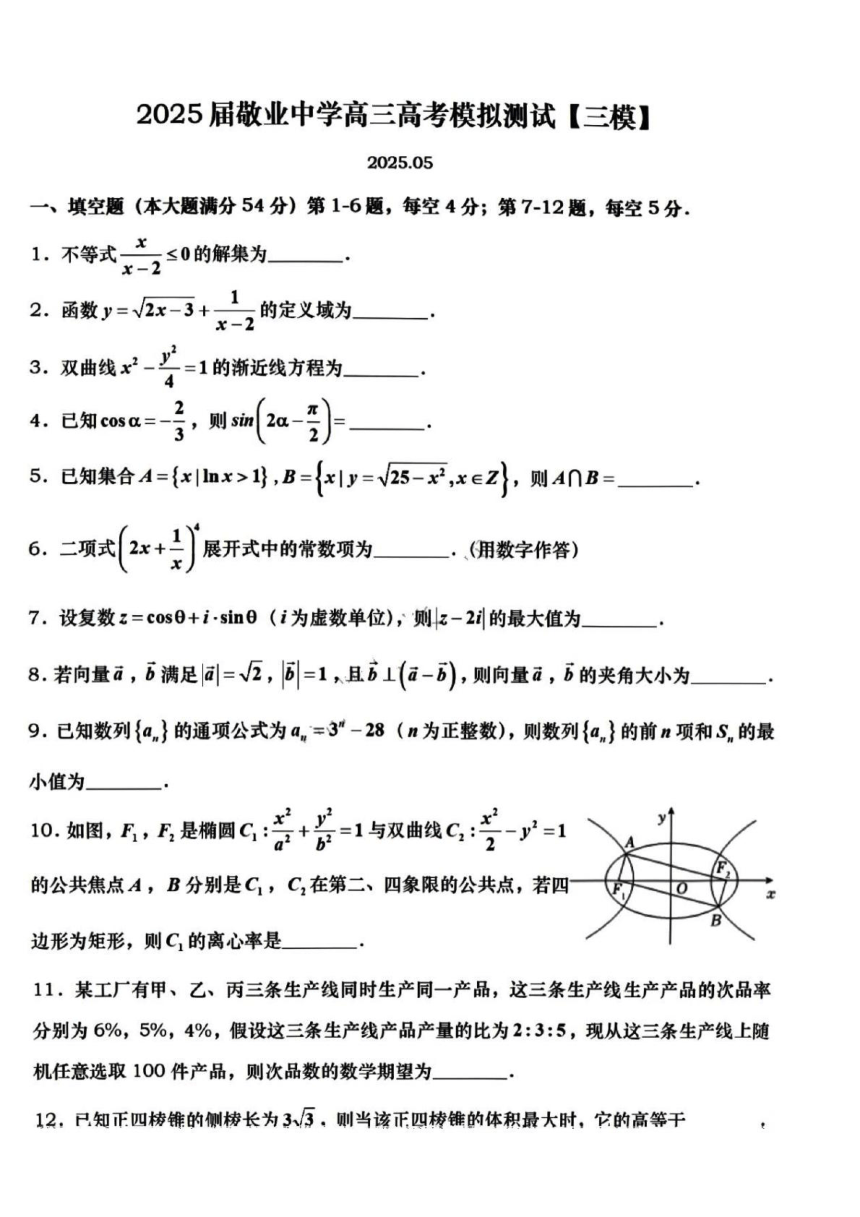 2025届敬业中学高三高考模拟测试【三模】
2025.05
一、填空题（本大题满分 54 分）第 1-6 题，每空 4 分；第 7-12 题，每空 5 分.
1. 不等式 $\frac{x}{x-2} \leq 0$ 的解集为______.
2. 函数 $y=\sqrt{2x-3}+\frac{1}{x-2}$ 的定义域为______.
3. 双曲线 $x^2-\frac{y^2}{4}=1$ 的渐近线方程为______.
4. 已知 $\cos\alpha=-\frac{2}{3}$，则 $sin\left(2\alpha-\frac{\pi}{2}\right)=$ ______.
5. 已知集合 $A=\{x|\ln x>1\}$ , $B=\left\{x|y=\sqrt{25-x^2},x\in Z\right\}$，则 $A\bigcap B=$______.
6. 二项式 $\left(2x+\frac{1}{x}\right)^4$ 展开式中的常数项为______.（用数字作答）
7. 设复数 $z=\cos\theta+i\cdot\sin\theta$（$i$ 为虚数单位），则 $|z-2i|$ 的最大值为______.
8. 若向量 $\vec{a}$，$\vec{b}$ 满足 $|\vec{a}|=\sqrt{2}$，$|\vec{b}|=1$，且 $\vec{b}\perp(\vec{a}-\vec{b})$，则向量 $\vec{a}$，$\vec{b}$ 的夹角大小为______.
9. 已知数列 $\{a_n\}$ 的通项公式为 $a_n=3^n-28$（$n$ 为正整数），则数列 $\{a_n\}$ 的前 $n$ 项和 $S_n$ 的最
小值为______.
10. 如图，$F_1$，$F_2$ 是椭圆 $C_1:\frac{x^2}{a^2}+\frac{y^2}{b^2}=1$ 与双曲线 $C_2:\frac{x^2}{2}-y^2=1$
的公共焦点 $A$，$B$ 分别是 $C_1$，$C_2$ 在第二、四象限的公共点，若四
边形为矩形，则 $C_1$ 的离心率是______.
y
A
F₂
F₁
O
x
B
11. 某工厂有甲、乙、丙三条生产线同时生产同一产品，这三条生产线生产产品的次品率
分别为 6%，5%，4%，假设这三条生产线产品产量的比为 2:3:5，现从这三条生产线上随
机任意选取 100 件产品，则次品数的数学期望为______.
12. 已知正四棱锥的侧棱长为 $3\sqrt{3}$，则当该正四棱锥的体积最大时，它的高等于______.